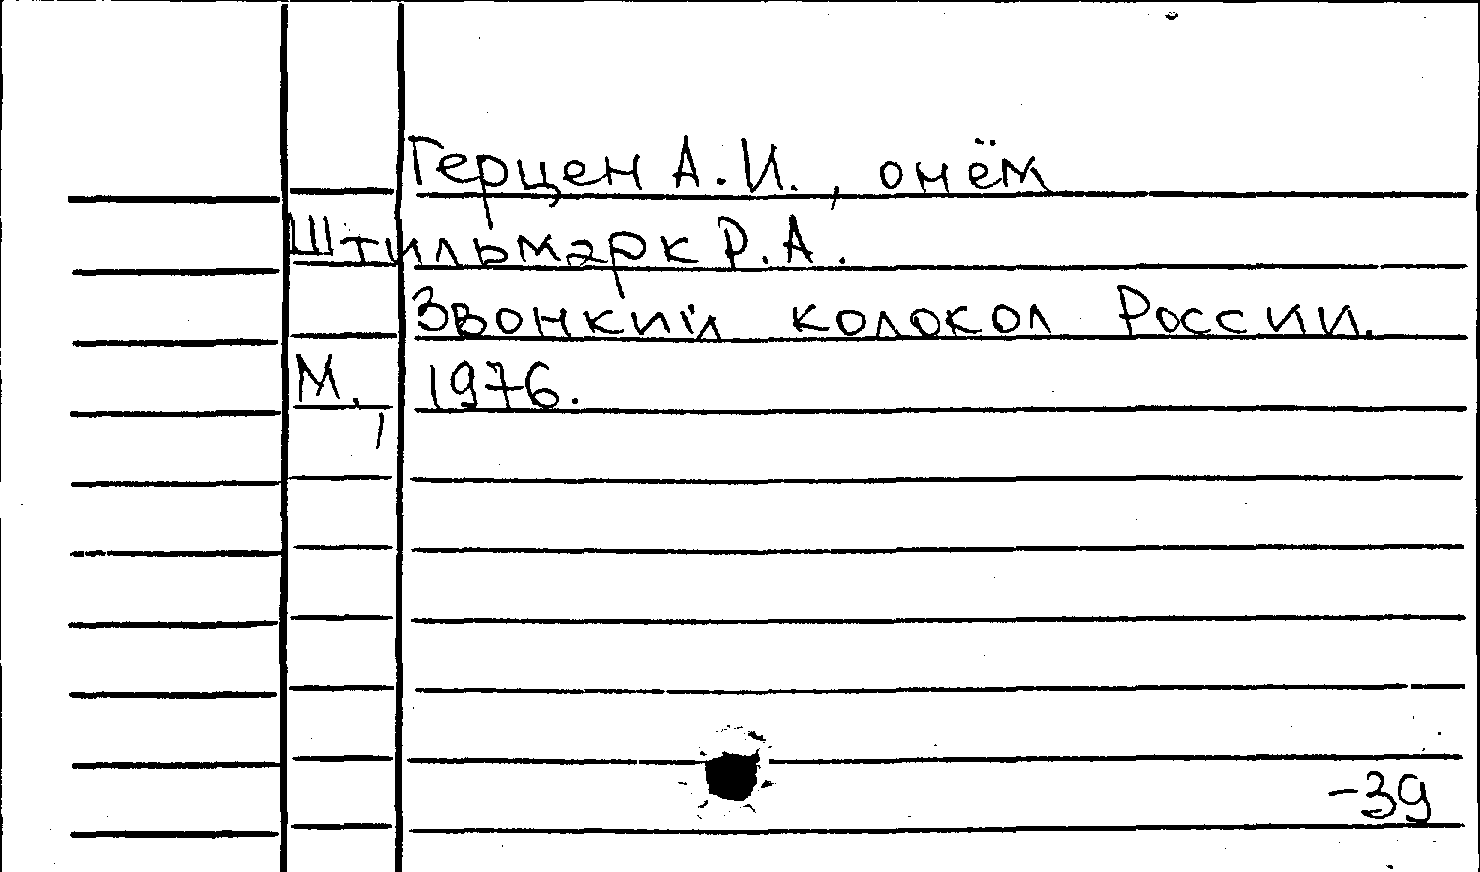 Герцен А.И., о нём
Штильмарк Р.А.
Звонкий колокол России.
М., 1976.
-39